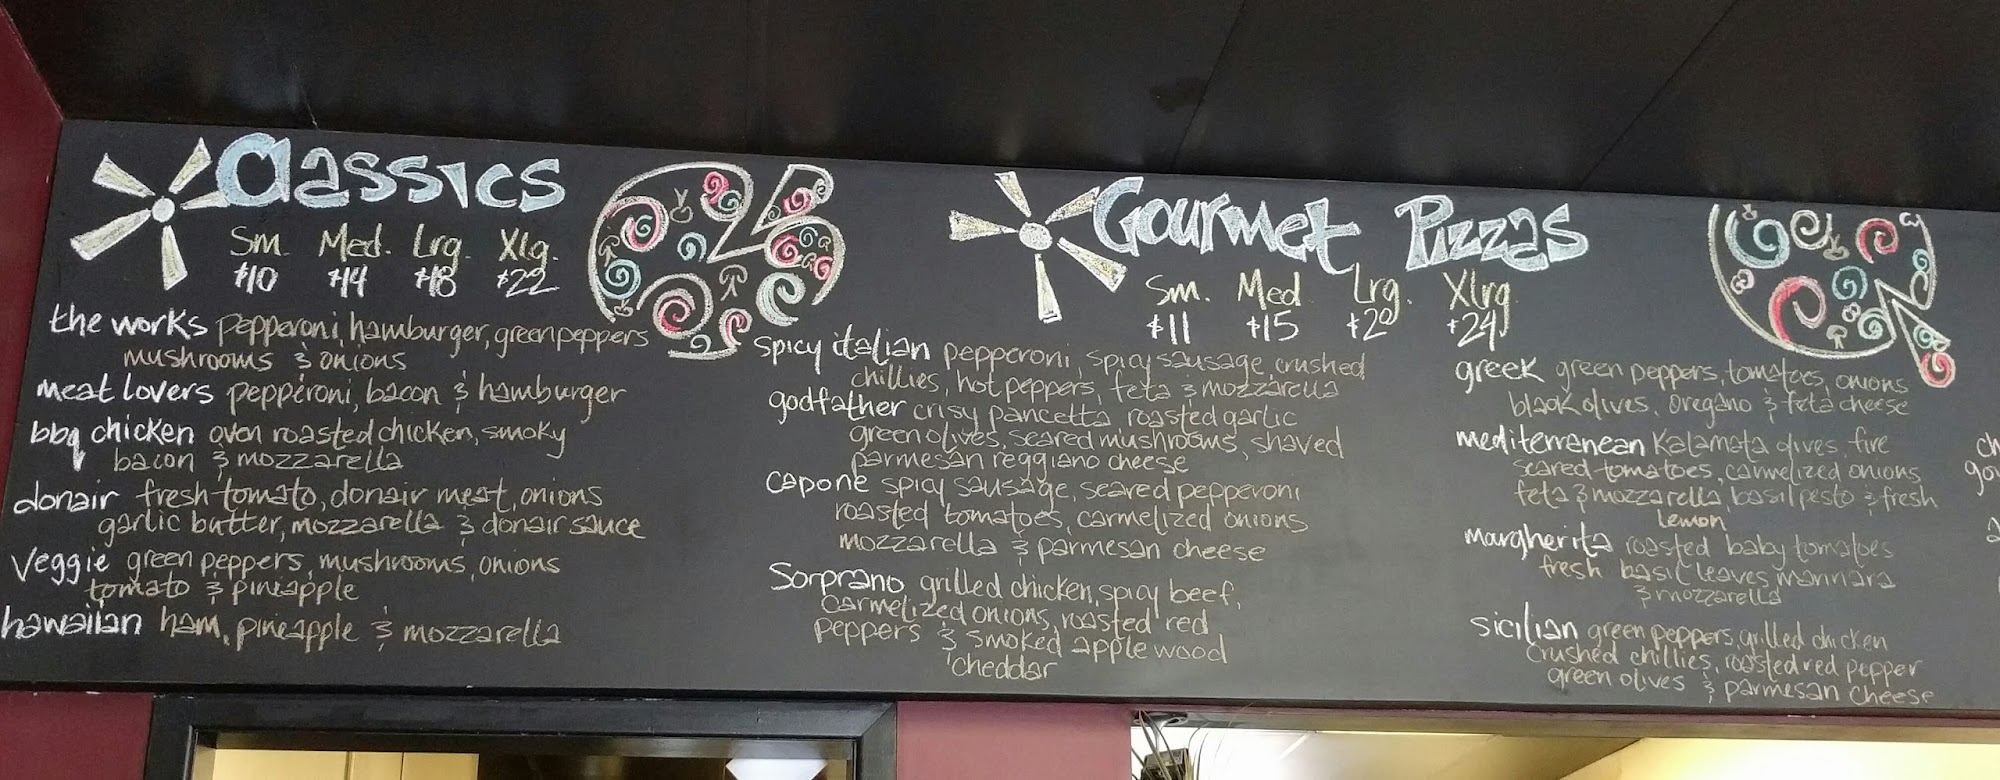 Classics
Sm. Med. Lrg. Xlg.
$10 $14 $18 $22
the works pepperoni, hamburger, green peppers
mushrooms & onions
meat lovers pepperoni, bacon & hamburger
bbq chicken oven roasted chicken, smoky
bacon & mozzarella
donair fresh tomato, donair meat, onions
garlic butter, mozzarella & donair sauce
Veggie green peppers, mushrooms, onions
tomato & pineapple
hawaiian ham, pineapple & mozzarella
Gourmet Pizzas
Sm. Med Lrg. Xlrg.
$11 $15 $20 $24
spicy italian pepperoni, spicy sausage, crushed
chillies, hot peppers, feta & mozzarella
godfather crisy pancetta, roasted garlic
green olives, seared mushrooms, shaved
parmesan reggiano cheese
capone spicy sausage, seared pepperoni
roasted tomatoes, carmelized onions
mozzarella & parmesan cheese
Sorprano grilled chicken, spicy beef,
carmelized onions, roasted red
peppers & smoked apple wood
cheddar
greek green peppers, tomatoes, onions
black olives, oregano & feta cheese
mediterranean Kalamata olives, fire
seared tomatoes, carmelized onions
feta & mozzarella, basil pesto & fresh
lemon
margherita roasted baby tomatoes
fresh basil leaves mannara
& mozzarella
sicilian green peppers, grilled chicken
crushed chillies, roasted red pepper
green olives & parmesan cheese